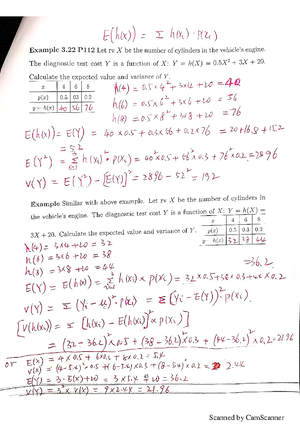 E(h(x)) = Σ h(xᵢ)·p(xᵢ)
Example 3.22 P112 Let rv X be the number of cylinders in the vehicle's engine.
The diagnostic test cost Y is a function of X: Y = h(X) = 0.5X² + 3X + 20.
Calculate the expected value and variance of Y.
x 4 6 8
p(x) 0.5 0.3 0.2
y = h(x) 40 56 76
h(4) = 0.5×4² + 3×4 + 20 = 40
h(6) = 0.5×6² + 3×6 + 20 = 56
h(8) = 0.5×8² + 3×8 + 20 = 76
E(h(x)) = E(Y) = 40×0.5 + 0.3×56 + 0.2×76 = 20+16.8+15.2
= 52
E(Y²) = Σ h(xᵢ)²·p(xᵢ) = 40²×0.5 + 56²×0.3 + 76²×0.2 = 2896
V(Y) = E(Y²) − [E(Y)]² = 2896 − 52² = 192
Example Similar with above example. Let rv X be the number of cylinders in
the vehicle's engine. The diagnostic test cost Y is a function of X: Y = h(X) =
3X + 20. Calculate the expected value and variance of Y.
x 4 6 8
p(x) 0.5 0.3 0.2
y = h(x) 32 38 44
h(4) = 3×4 + 20 = 32
h(6) = 3×6 + 20 = 38
h(8) = 3×8 + 20 = 44
= 36.2
E(Y) = E(h(x)) = Σ h(xᵢ) × p(xᵢ) = 32×0.5 + 38×0.3 + 44×0.2
V(Y) = Σ (Yᵢ − μ)²·p(xᵢ) = Σ (Yᵢ − E(Y))²·p(xᵢ)
[V(h(x)) = Σ [h(xᵢ) − E(h(x))]²×p(xᵢ)]
= (32−36.2)²×0.5 + (38−36.2)²×0.3 + (44−36.2)²×0.2 = 21.96
or E(X) = 4×0.5 + 6×0.3 + 8×0.2 = 5.4
V(X) = (4−5.4)²×0.5 + (6−5.4)²×0.3 + (8−5.4)²×0.2 = 2.44
E(Y) = 3·E(X) + 20 = 3×5.4 + 20 = 36.2
V(Y) = 3²×V(X) = 9×2.44 = 21.96
Scanned by CamScanner